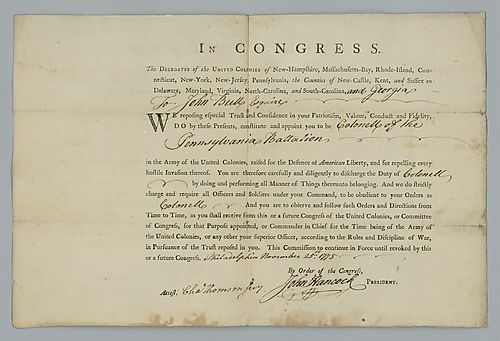 IN CONGRESS.
The DELEGATES of the UNITED COLONIES of New-Hampshire, Massachusetts-Bay, Rhode-Island, Con-
necticut, New-York, New-Jersey, Pennsylvania, the Counties of New-Castle, Kent, and Sussex on
Delaware, Maryland, Virginia, North-Carolina, and South-Carolina, and Georgia
To John Bull Esquire
WE reposing especial Trust and Confidence in your Patriotism, Valour, Conduct and Fidelity,
DO by these Presents, constitute and appoint you to be Colonell of the
Pennsylvania Battalion
in the Army of the United Colonies, raised for the Defence of American Liberty, and for repelling every
hostile Invasion thereof. You are therefore carefully and diligently to discharge the Duty of Colonell
by doing and performing all Manner of Things thereunto belonging. And we do strictly
charge and require all Officers and Soldiers under your Command, to be obedient to your Orders as
Colonell And you are to observe and follow such Orders and Directions from
Time to Time, as you shall receive from this or a future Congress of the United Colonies, or Committee
of Congress, for that Purpose appointed, or Commander in Chief for the Time being of the Army of
the United Colonies, or any other your superior Officer, according to the Rules and Discipline of War,
in Pursuance of the Trust reposed in you. This Commission to continue in Force until revoked by this
or a future Congress. Philadelphia November 25th 1775
By Order of the Congress,
John Hancock PRESIDENT.
Attest. Cha Thomson Secy